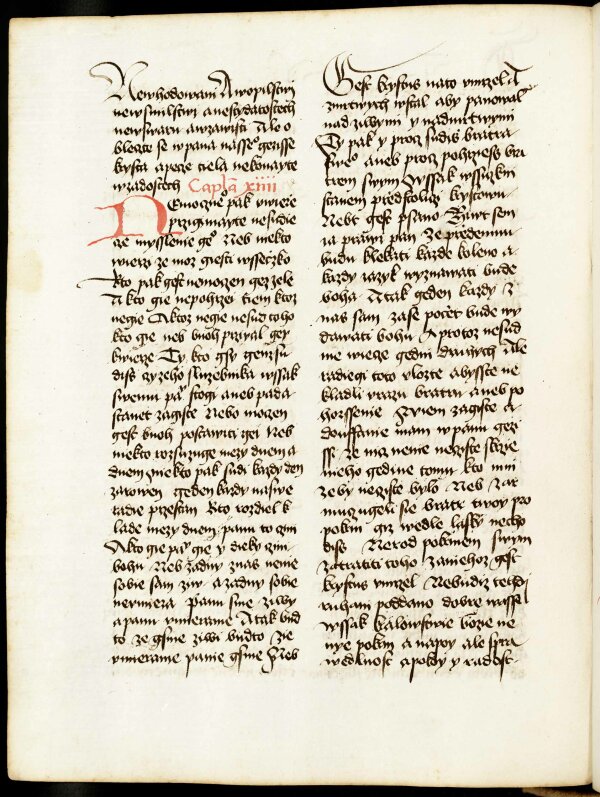 Newhodowani A wopilstwi
newsmilstwi anestydatostech
newswaru awzawisti Ale o
blecte se wpana nasseo gezisse
krysta apecze tiela nekonayte
wzadostech Capla xiiii
Nemoczneo pak wwierze
przigimayte nesudie
cze myssleni geo Neb niekto
wierzi ze moz giesti wssečzko
kto pak gest nemoczen gez zele
A kto gie nepohrzei tiem ktoz
negie Aktoz negie nesud toho
kto gie neb buoh przyal gey
kwierze Ty kto gsy genz su
diss czyzeho sluzebnika wssak
swemu panu stogi aneb pada
stanet zagiste Nebo moczen
gest buoh postawiti gei Neb
niekto rozsuzuge mezy dnem a
dnem niekto pak sudi kazdy den
zarowen geden kazdy naswe
radie przestan kto rozdiel k
lade mezy dnem panu to czini
Akto gie panu gie y dieky czini
bohu Neb zadny znas neme
sobie sam ziw a zadny sobie
nevmiera Panu sme ziwy
a panu vmierame A tak bud
to ze gsme ziwi budto ze
vmierame panie gsme Neb
Gest krystus nato vmrzel A
zmrtwych wstal aby panowal
nad ziwymi y nadmrtwymi
Ty pak y procz sudiss bratra
sweo aneb procz pohrzness bra
trem swym Wssak wssiczkni
stanem przedstolicy krystowu
Nebt gest psano Ziwt sem
ia prawi pan Ze przedemnu
budu klekati kazde koleno a
kazdy yazyk wyznawati bude
boha A tak geden kazdy z
nas sam zase poczet bude wy
dawati bohu A protoz nesud
me wiecze gedni druhych Ale
radiegi toto vlozte abysste ne
kladli vrazu bratru aneb po
horssenie Swiem zagiste a
doufanie mam wpanu gezi
ssi ze nicz neme neciste skrze
nieho gedine tomu kto mni
zeby neciste bylo Neb zar
mucugeli se bratr twoy pro
pokrm giz wedle lasky necho
diss Nerod pokrmem swym
zatratiti toho zaniehoz gest
krystus vmrzel Nebudiz tehdi
ruhani poddano dobre nasse
wssak kralowstwie bozie ne
nye pokrm a napoy ale spra
wedlnost a pokoy y radost